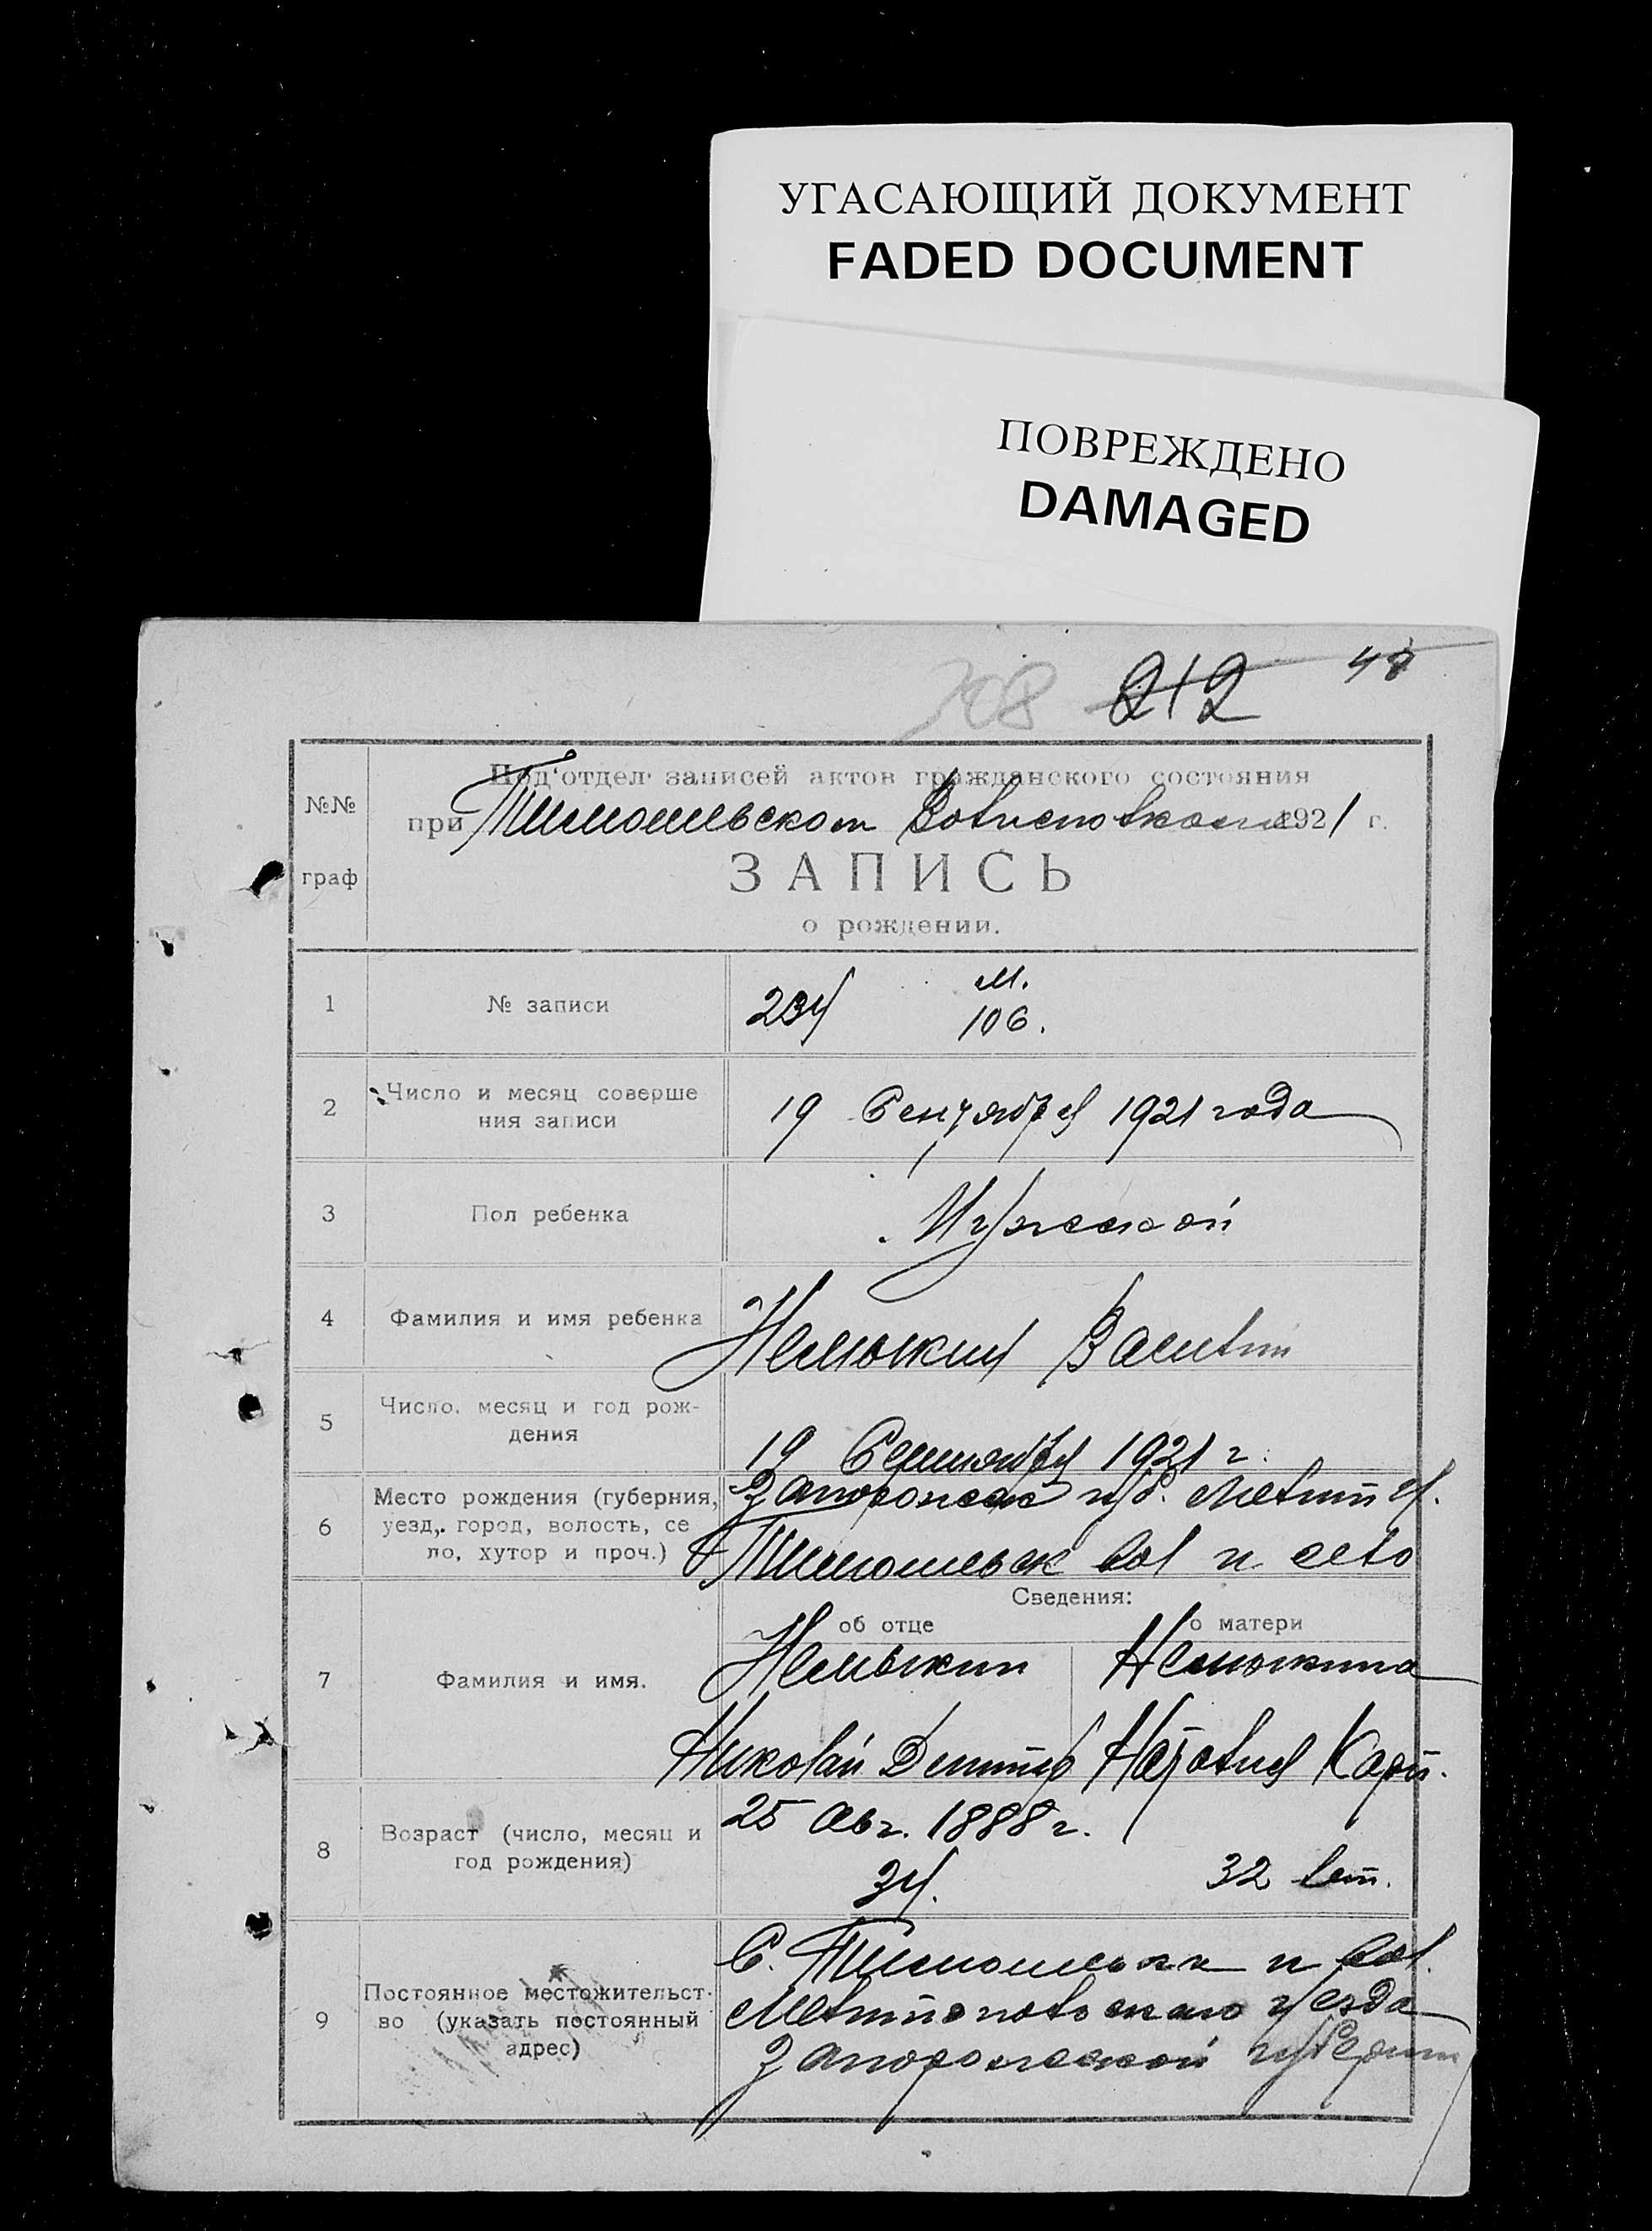 УГАСАЮЩИЙ ДОКУМЕНТ
FADED DOCUMENT
ПОВРЕЖДЕНО
DAMAGED
212 48
№№
граф
Под'отдел записей актов гражданского состояния
при Тимошевском Волисполкоме 1921 г.
ЗАПИСЬ
о рождении.
1 № записи 234 М.
106.
2 Число и месяц соверше
ния записи
19 Сентября 1921 года
3 Пол ребенка Мужской
4 Фамилия и имя ребенка Немыкин
5 Число, месяц и год рож-
дения
19 Сентября 1921 г.
6 Место рождения (губерния,
уезд, город, волость, се
ло, хутор и проч.)
Запорожск губ. Мелит у.
Тимошевск вол и село
Сведения:
об отце о матери
7 Фамилия и имя.
Немыкин Немыкина
Николай Дмитр Наталия Карп.
8 Возраст (число, месяц и
год рождения)
25 авг. 1888 г.
34. 32 лет.
9 Постоянное местожительст-
во (указать постоянный
адрес)
С. Тимошевка и вол.
Мелитопольского уезда
Запорожской губернии